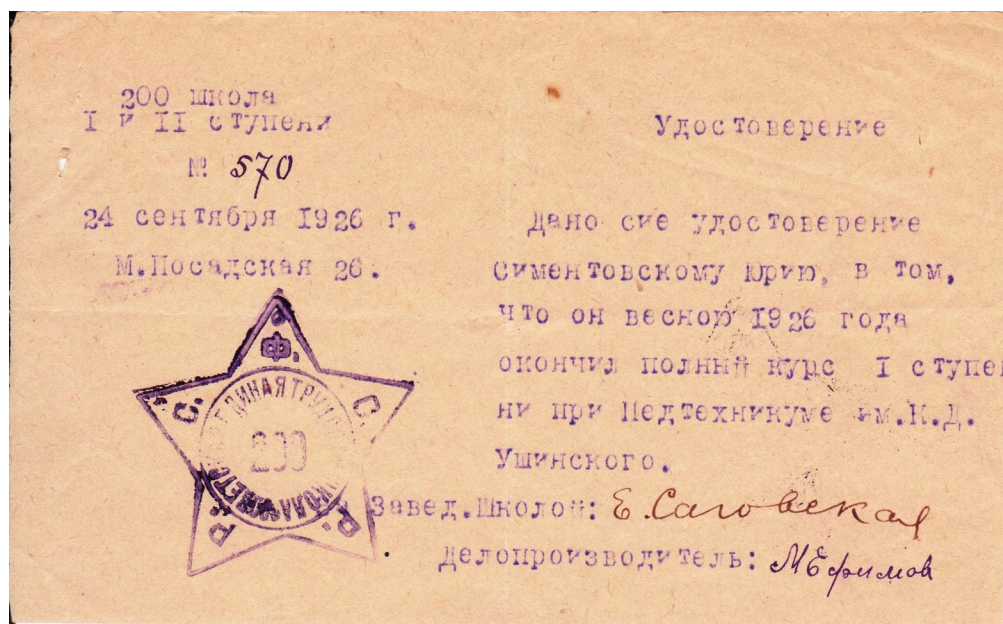 200 школа
I и II ступени
№ 570
24 сентября 1926 г.
М.Посадская 26.
Удостоверение
Дано сие удостоверение
Симентовскому Юрию, в том,
что он весною 1926 года
окончил полный курс I ступе
ни при Педтехникуме им.К.Д.
Ушинского.
Завед.Школой: Е.Саговская
Делопроизводитель: МЕфимов
Р. С. Ф. С. Р.
200